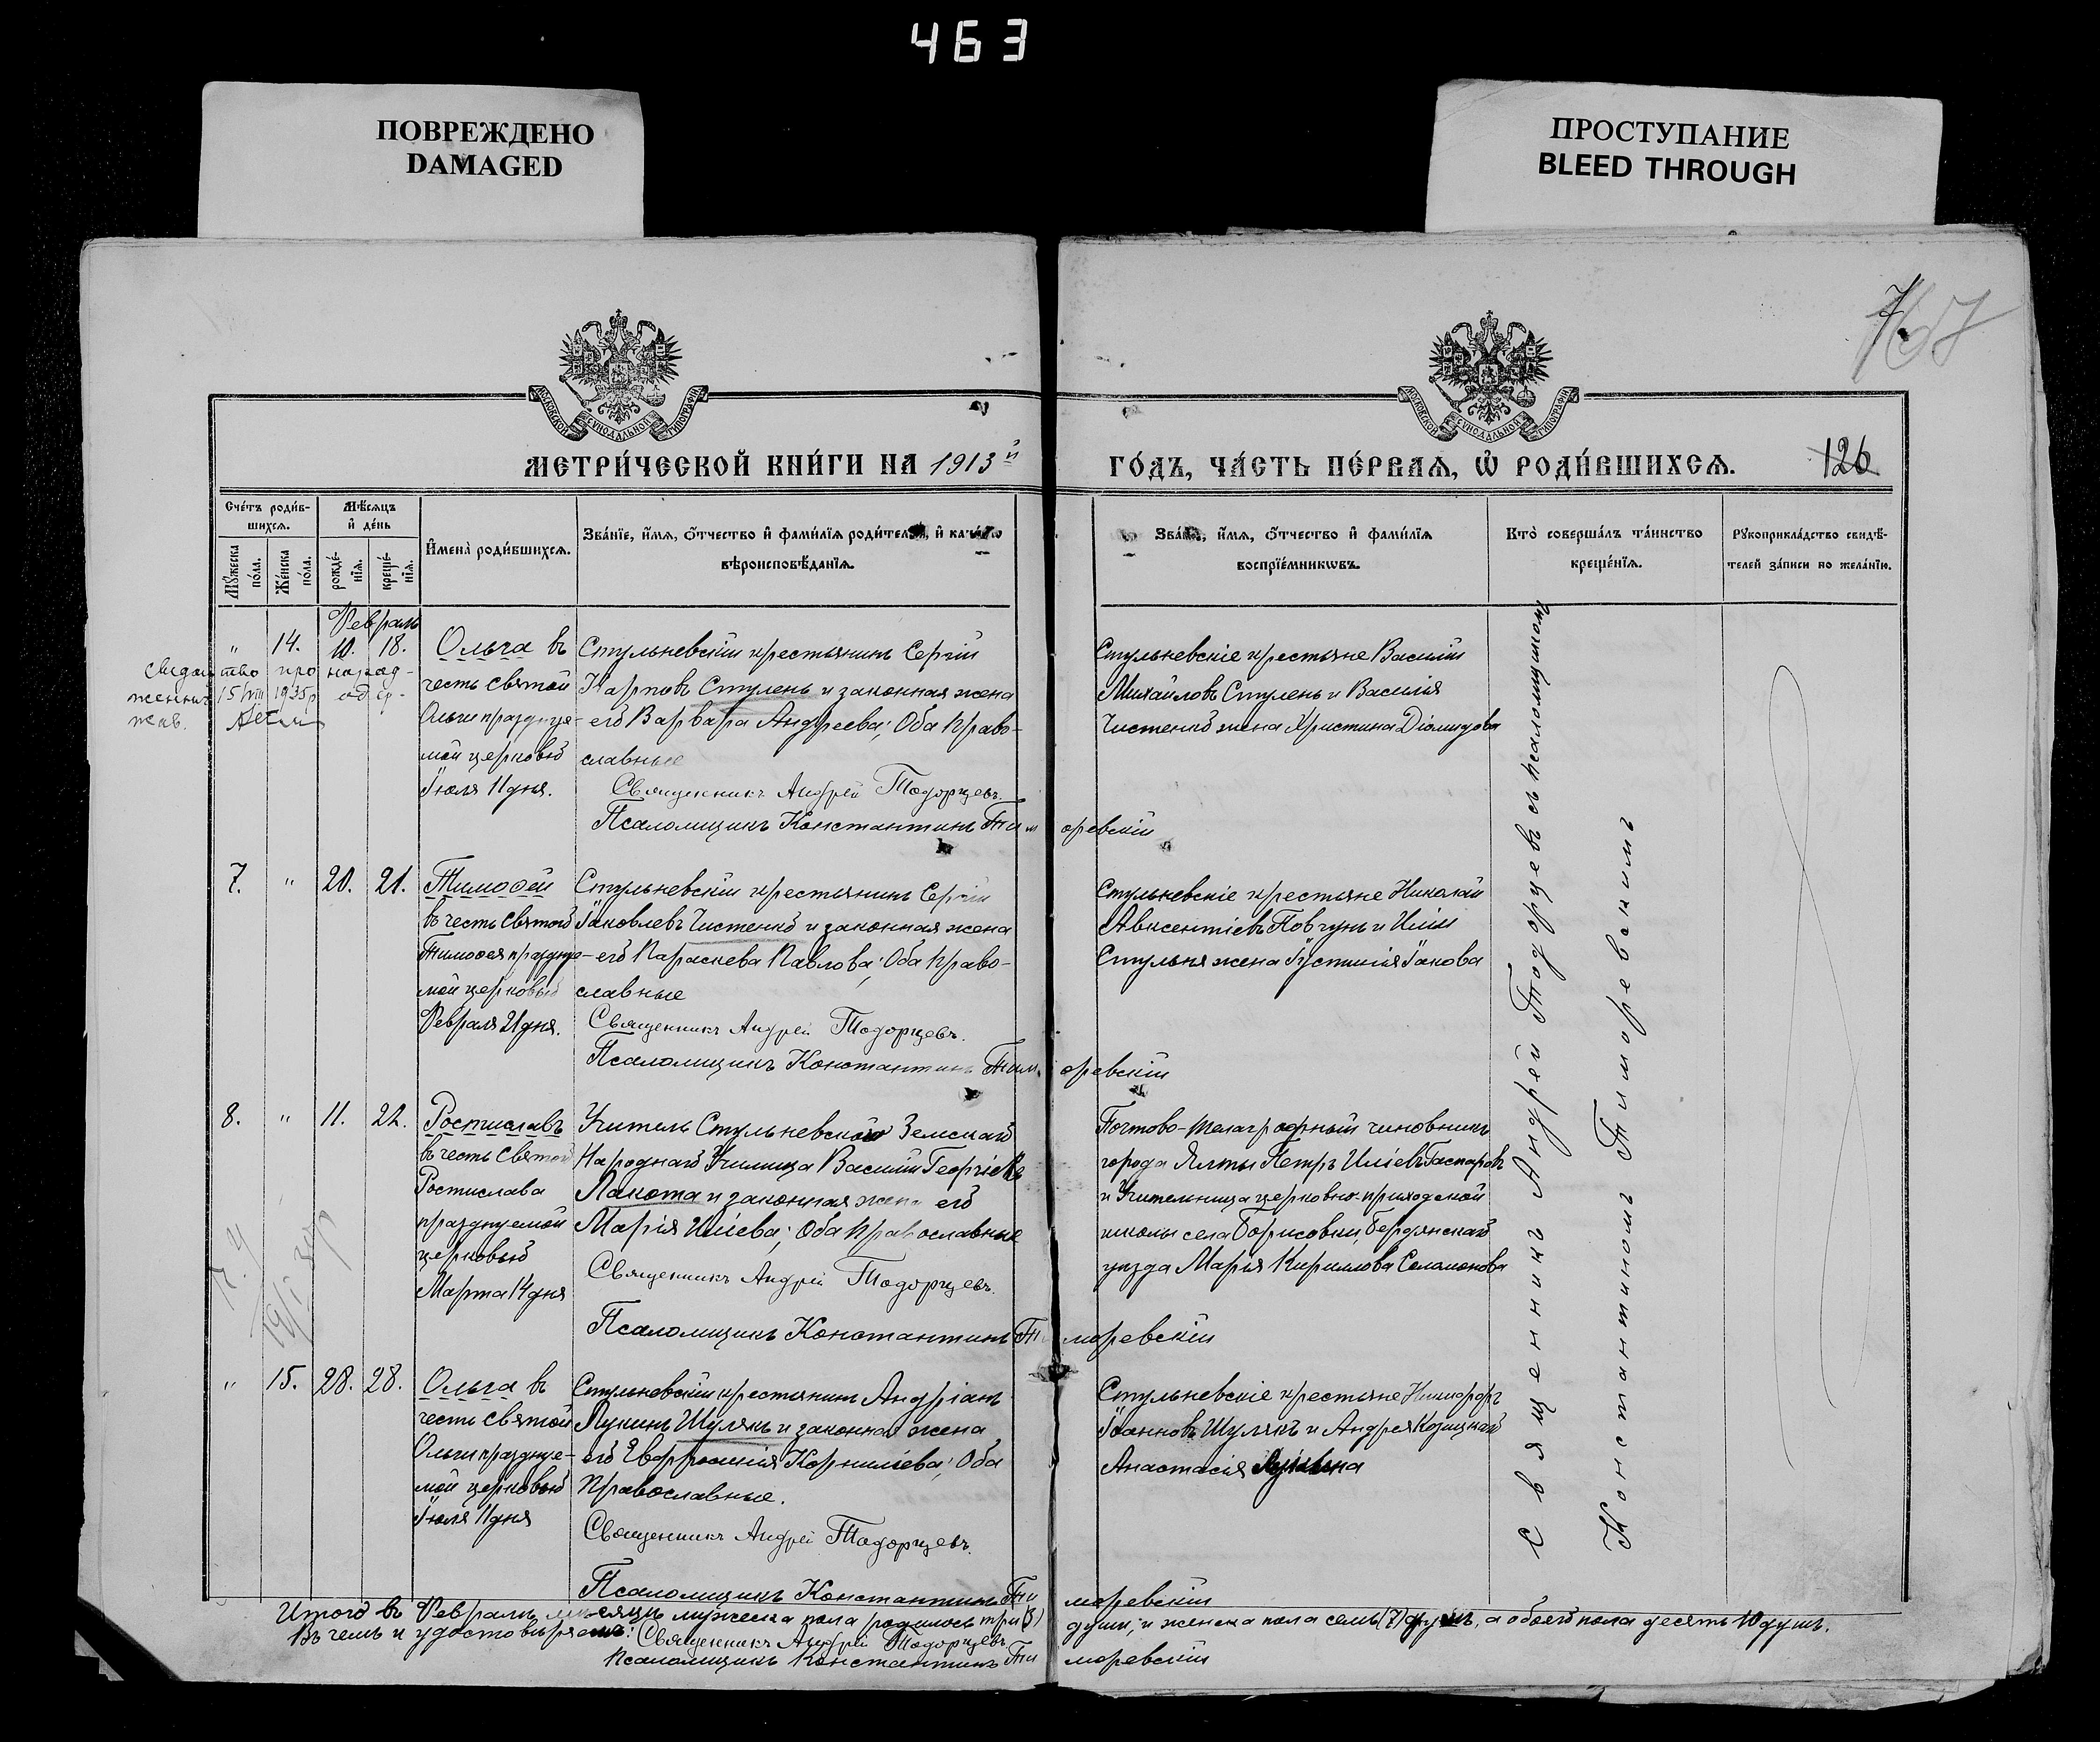 463
ПОВРЕЖДЕНО
DAMAGED
ПРОСТУПАНИЕ
BLEED THROUGH
7
167
МОСКОВСКОЙ СѴНОДАЛЬНОЙ ТИПОГРАФІИ
МОСКОВСКОЙ СѴНОДАЛЬНОЙ ТИПОГРАФІИ
МЕТРИ́ЧЕСКОЙ КНИ́ГИ НА 1913й
ГО́ДЪ, ЧА́СТЬ ПЕ́РВАѦ, Ѡ҆ РОДИ́ВШИХСѦ.
126
Сче́тъ роди́в-
шихсѧ.
Мꙋ́жеска по́ла.
Же́нска по́ла.
Мѣ́сѧцъ
и҆ де́нь
рожде́-
нїѧ.
креще́-
нїѧ.
И҆мена̀ роди́вшихсѧ.
Зва́нїе, и҆́мѧ, ѻ҆́тчество и҆ фами́лїѧ роди́телей, и҆ како́гѡ
вѣроисповѣ́данїѧ.
Зва́нїе, и҆́мѧ, ѻ҆́тчество и҆ фами́лїѧ
воспрїе́мникѡвъ.
Кто̀ соверша́лъ та́инство
креще́нїѧ.
Рꙋкоприкла́дство свидѣ́-
телей за́писи по жела́нїю.
Февраль
" 14. 10. 18.
Ольга въ
честь святой
Ольги праздуе-
мой церковью
Іюля 11 дня.
Стульневскій крестьянинъ Сергій
Карповъ Стулень и законная жена
его Варвара Андреева; Оба право-
славные
Священникъ Андрей Тодорцевъ.
Псаломщикъ Константинъ Тиморевскій
Стульневскіе крестьяне Василій
Михайловъ Стулень и Василія
Чистенко жена Христина Діомидова
7. " 20. 21.
Тимоѳей
въ честь святого
Тимоѳея праздуе-
мой церковью
Февраля 21 дня.
Стульневскій крестьянинъ Сергій
Іаковлевъ Чистенко и законная жена
его Параскева Павлова; Оба право-
славные
Священникъ Андрей Тодорцевъ.
Псаломщикъ Константинъ Тиморевскій
Стульневскіе крестьяне Николай
Авксентіевъ Повчунъ и Иліи
Стульня жена Іустинія Іакова
8. " 11. 22.
Ростиславъ
въ честь святого
Ростислава
празднуемой
церковью
Марта 14 дня
Учитель Стульневскаго Земскаго
Народнаго Училища Василій Георгіевъ
Лакота и законная жена его
Марія Иліева; Оба православные
Священникъ Андрей Тодорцевъ.
Псаломщикъ Константинъ Тиморевскій
Почтово-телеграфный чиновникъ
города Ялты Петръ Иліевъ Гаспаровъ
и Учительница церковно-приходской
школы села Борисовки, Бердянскаго
уѣзда Марія Кириллова Соломонова
" 15. 28. 28.
Ольга въ
честь святой
Ольги праздуе-
мой церковью
Іюля 11 дня
Стульневскій крестьянинъ Андріанъ
Лукинъ Шулякъ и законная жена
его Евфросинія Корниліева; Оба
православные.
Священникъ Андрей Тодорцевъ.
Псаломщикъ Константинъ Тиморевскій
Стульневскіе крестьяне Никифоръ
Іоанновъ Шулякъ и Андрея Козицкаго
Анастасія
Священникъ Андрей Тодорцевъ съ псаломщикомъ
Константиномъ Тиморевскимъ
Итого въ Февралѣ мѣсяцѣ мужеска пола родилось три (3) души, и женска пола семь (7) душъ, а обоего пола десять 10 душъ.
Въ чемъ и удостовѣряемъ: Священникъ Андрей Тодорцевъ.
Псаломщикъ Константинъ Тиморевскій